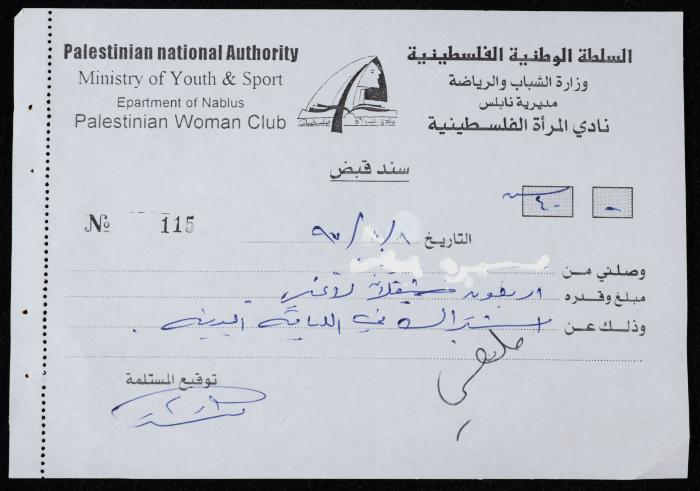 Palestinian national Authority
Ministry of Youth & Sport
Epartment of Nablus
Palestinian Woman Club
السلطة الوطنية الفلسطينية
وزارة الشباب والرياضة
مديرية نابلس
نادي المرأة الفلسطينية
سند قبض
٤٠
№ 115
التاريخ
وصلني من
مبلغ وقدره اربعون شيقلاً لاغير
وذلك عن اشتراك في اللياقة البدنية .
ملغي
توقيع المستلمة